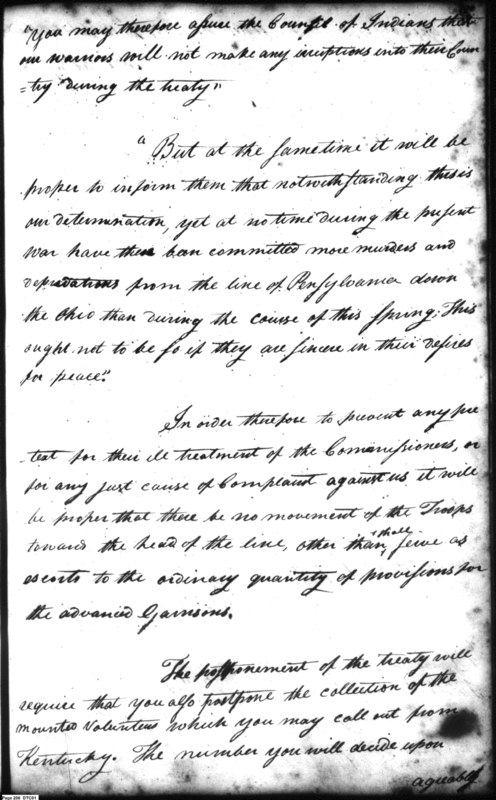 "You may therefore assure the Council of Indians that
our warriors will not make any irruptions into their Coun
=try during the treaty"
"But at the same time it will be
proper to inform them that notwithstanding this is
our determination, yet at no time during the present
war have there been committed more murders and
depredations from the line of Pensylvania down
the Ohio than during the course of this Spring: This
ought not to be so if they are sincere in their desires
for peace."
In order therefore to prevent any pre
text for their ill treatment of the Commissioners, or
for any just cause of Complaint against us it will
be proper that there be no movement of the Troops
towards the head of the line, other than shall serve as
escorts to the ordinary quantity of provisions for
the advanced Garrisons.
The postponement of the treaty will
require that you also postpone the collection of the
mounted Volunteers which you may call out from
Kentucky. The number you will decide upon
agreably
Page 206 DTC01